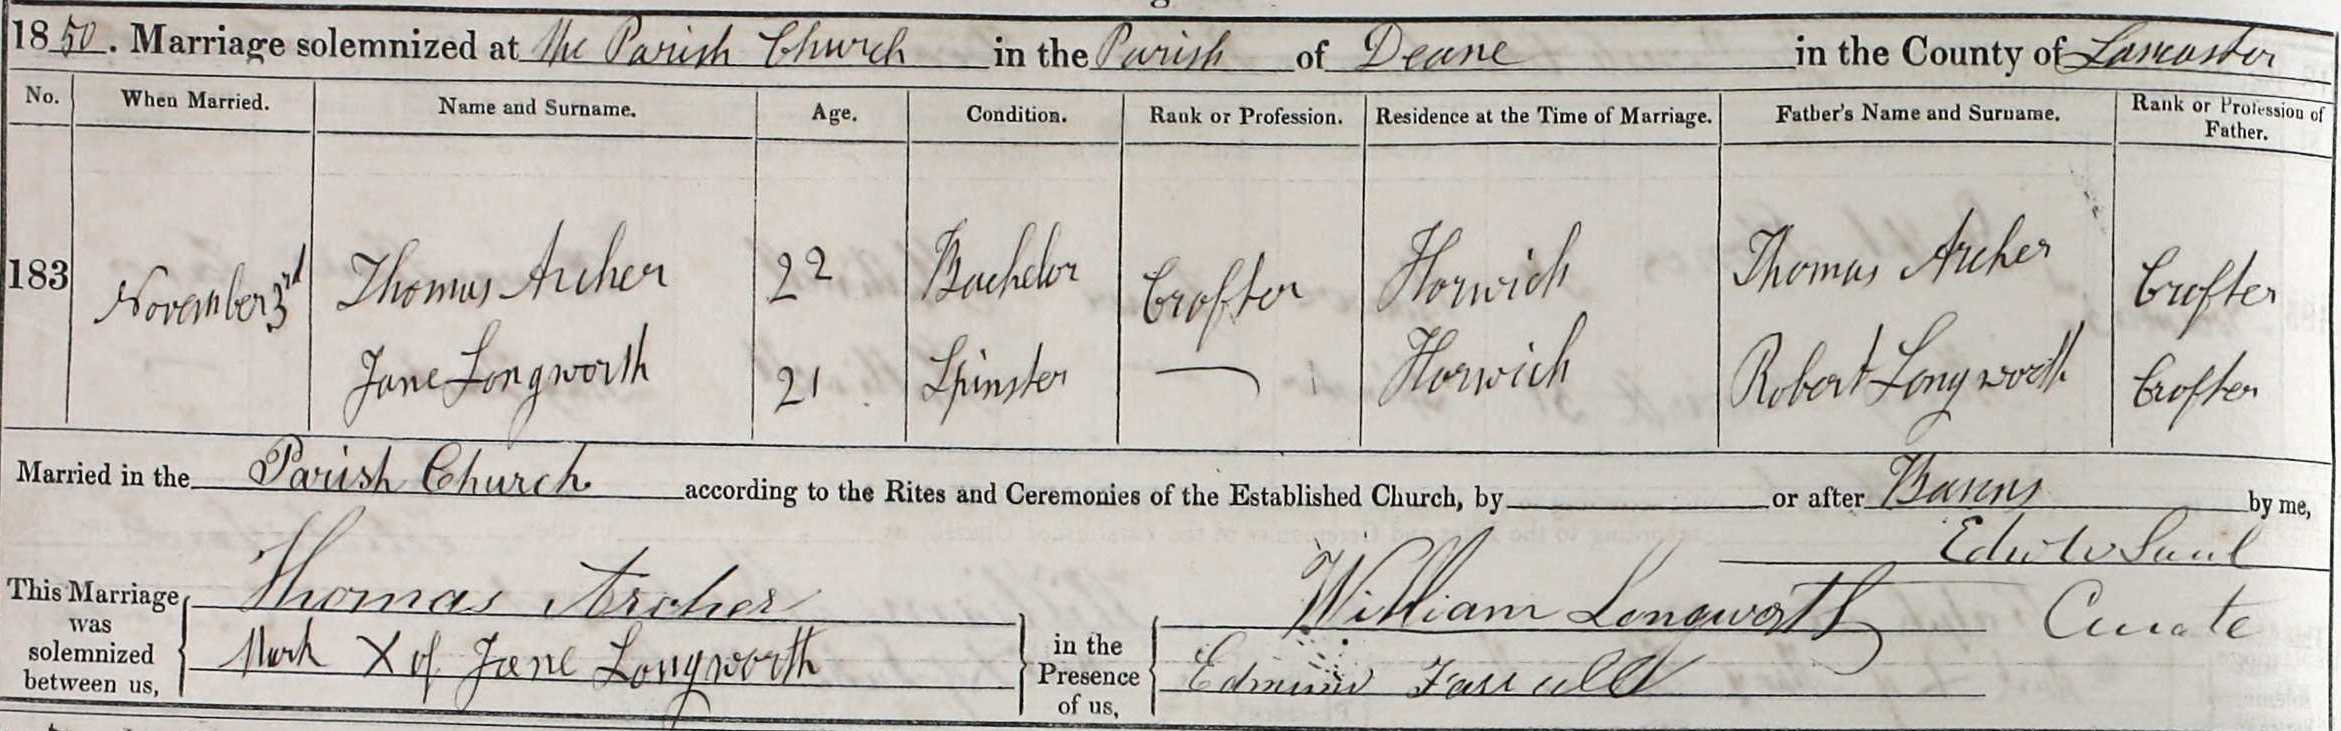 1850. Marriage solemnized at the Parish Church in the Parish of Deane in the County of Lancaster
No. When Married. Name and Surname. Age. Condition. Rank or Profession. Residence at the Time of Marriage. Father's Name and Surname. Rank or Profession of Father.
183 November 3rd Thomas Archer 22 Bachelor Crofter Horwich Thomas Archer Crofter
Jane Longworth 21 Spinster — Horwich Robert Longworth Crofter
Married in the Parish Church according to the Rites and Ceremonies of the Established Church, by or after Banns by me,
Saul
This Marriage was solemnized between us, Thomas Archer in the Presence of us, William Longworth Curate
Mark X of Jane Longworth Edmund